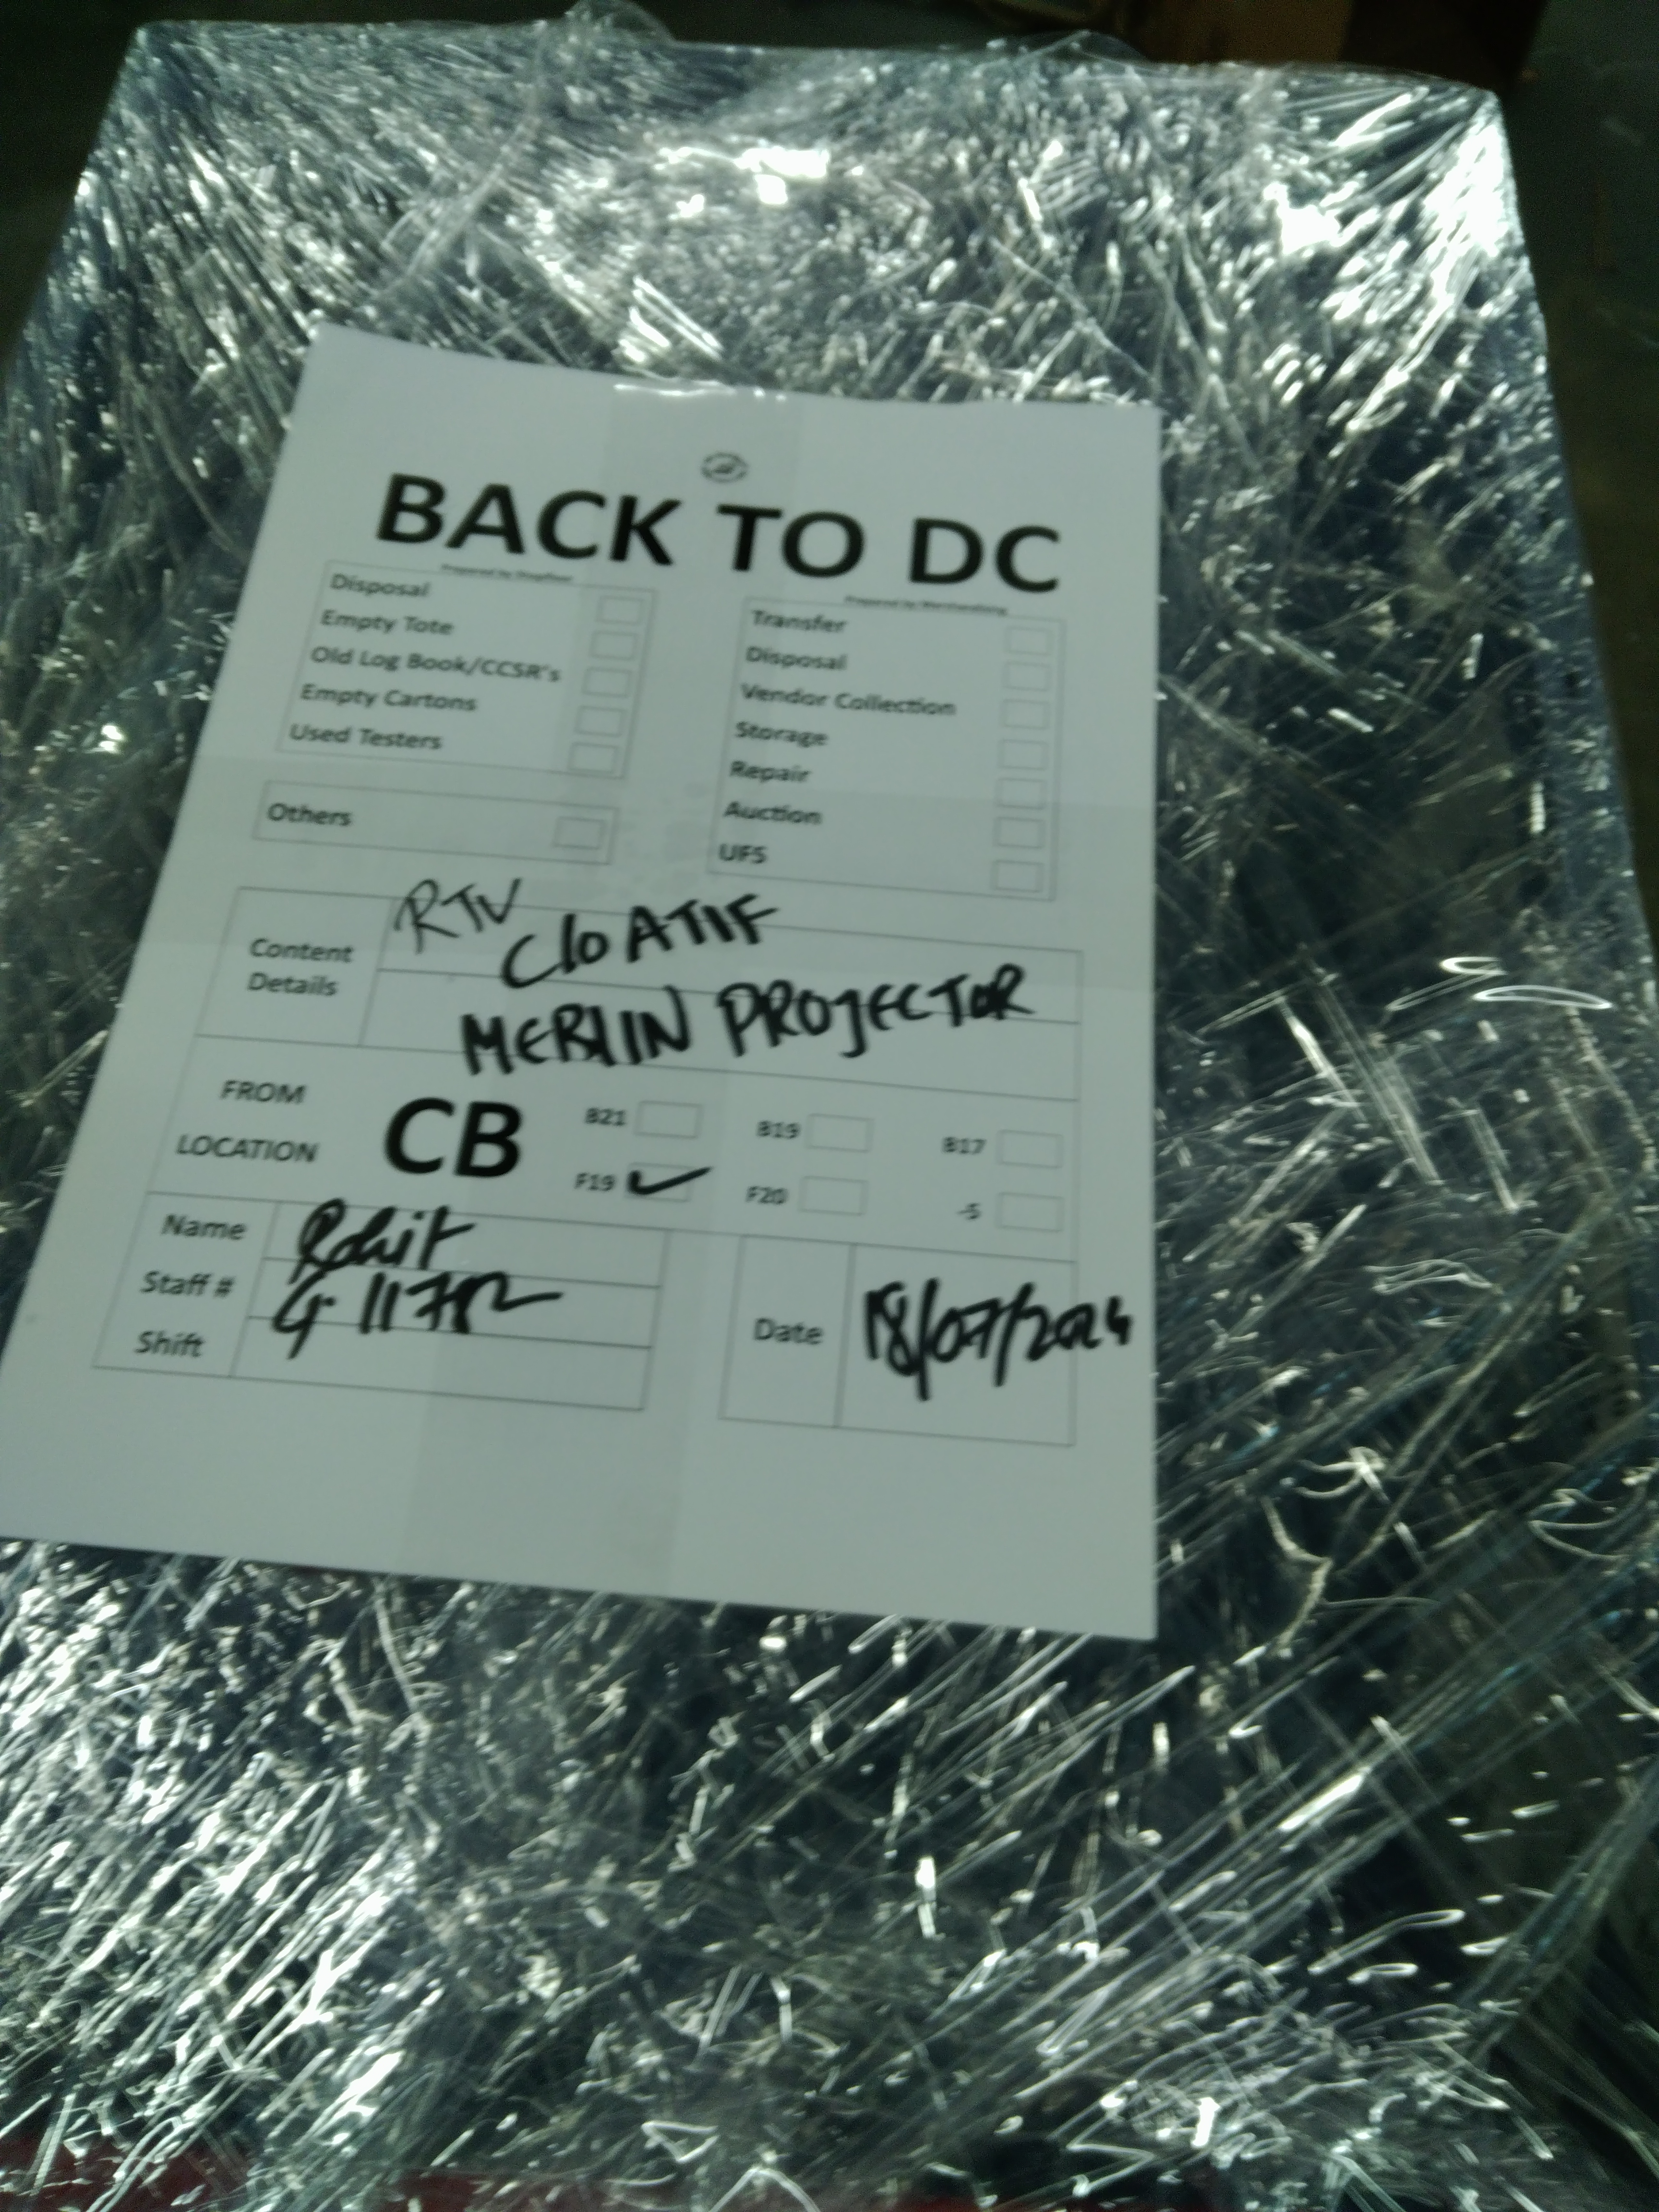 BACK TO DC
Prepared by Shopfloor
Disposal
Empty Tote
Old Log Book/CCSR's
Empty Cartons
Used Testers
Others
Prepared by Merchandising
Transfer
Disposal
Vendor Collection
Storage
Repair
Auction
UFS
Content Details
RTV
C/O ATIF
MERLIN PROJECTOR
FROM LOCATION
CB
B21 B19 B17
F19 ✓ F20 -5
Name Rohit
Staff #
Shift
Date 18/07/2024